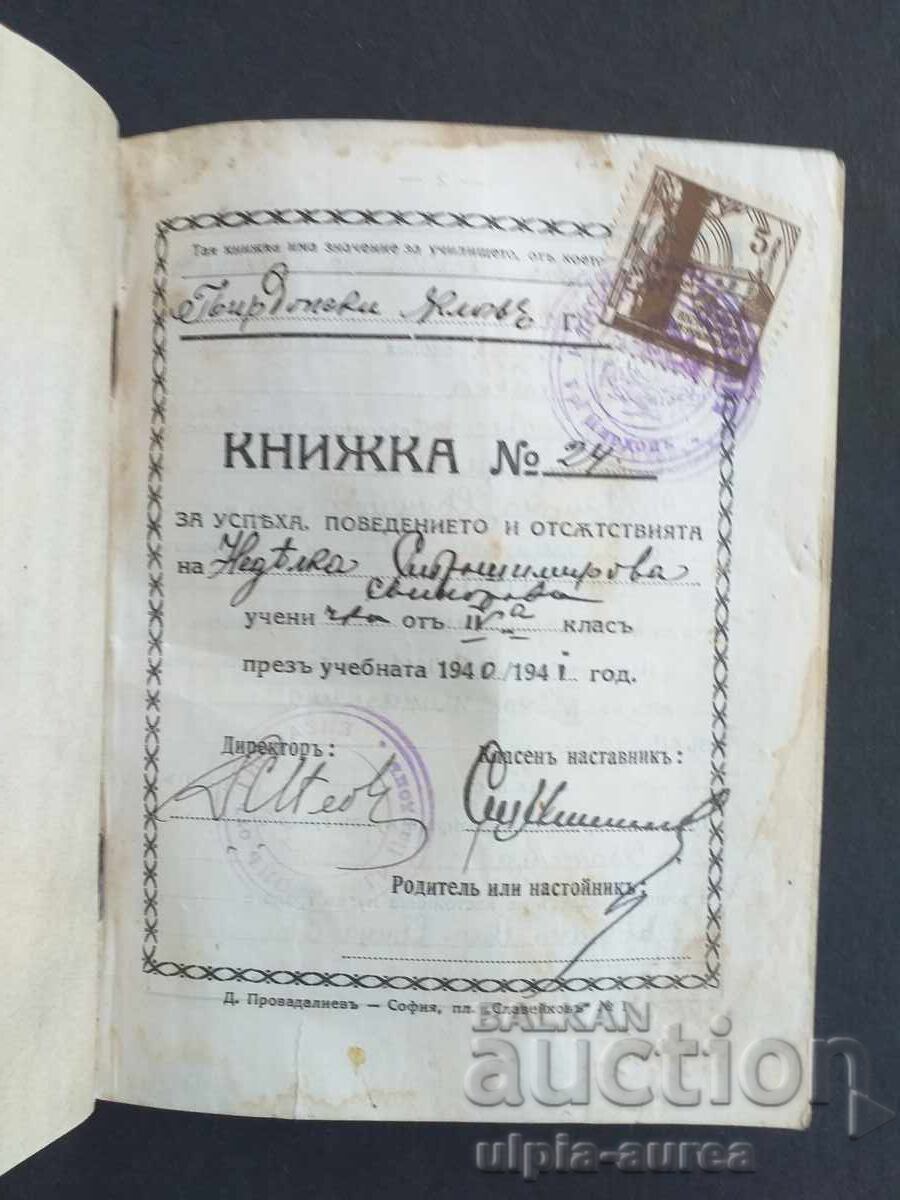 Тая книжка има значение за училището, отъ което
г.
5
КНИЖКА № 24
ЗА УСПѢХА, ПОВЕДЕНИЕТО И ОТСѪТСТВИЯТА
на Недѣлка
учени чка отъ IV а класъ
презъ учебната 1940/1941 год.
Директоръ:
Класенъ наставникъ:
Родитель или настойникъ:
Д. Провадалиевъ — София, пл. „Славейковъ" № 1
BALKAN
auction
ulpia-aurea